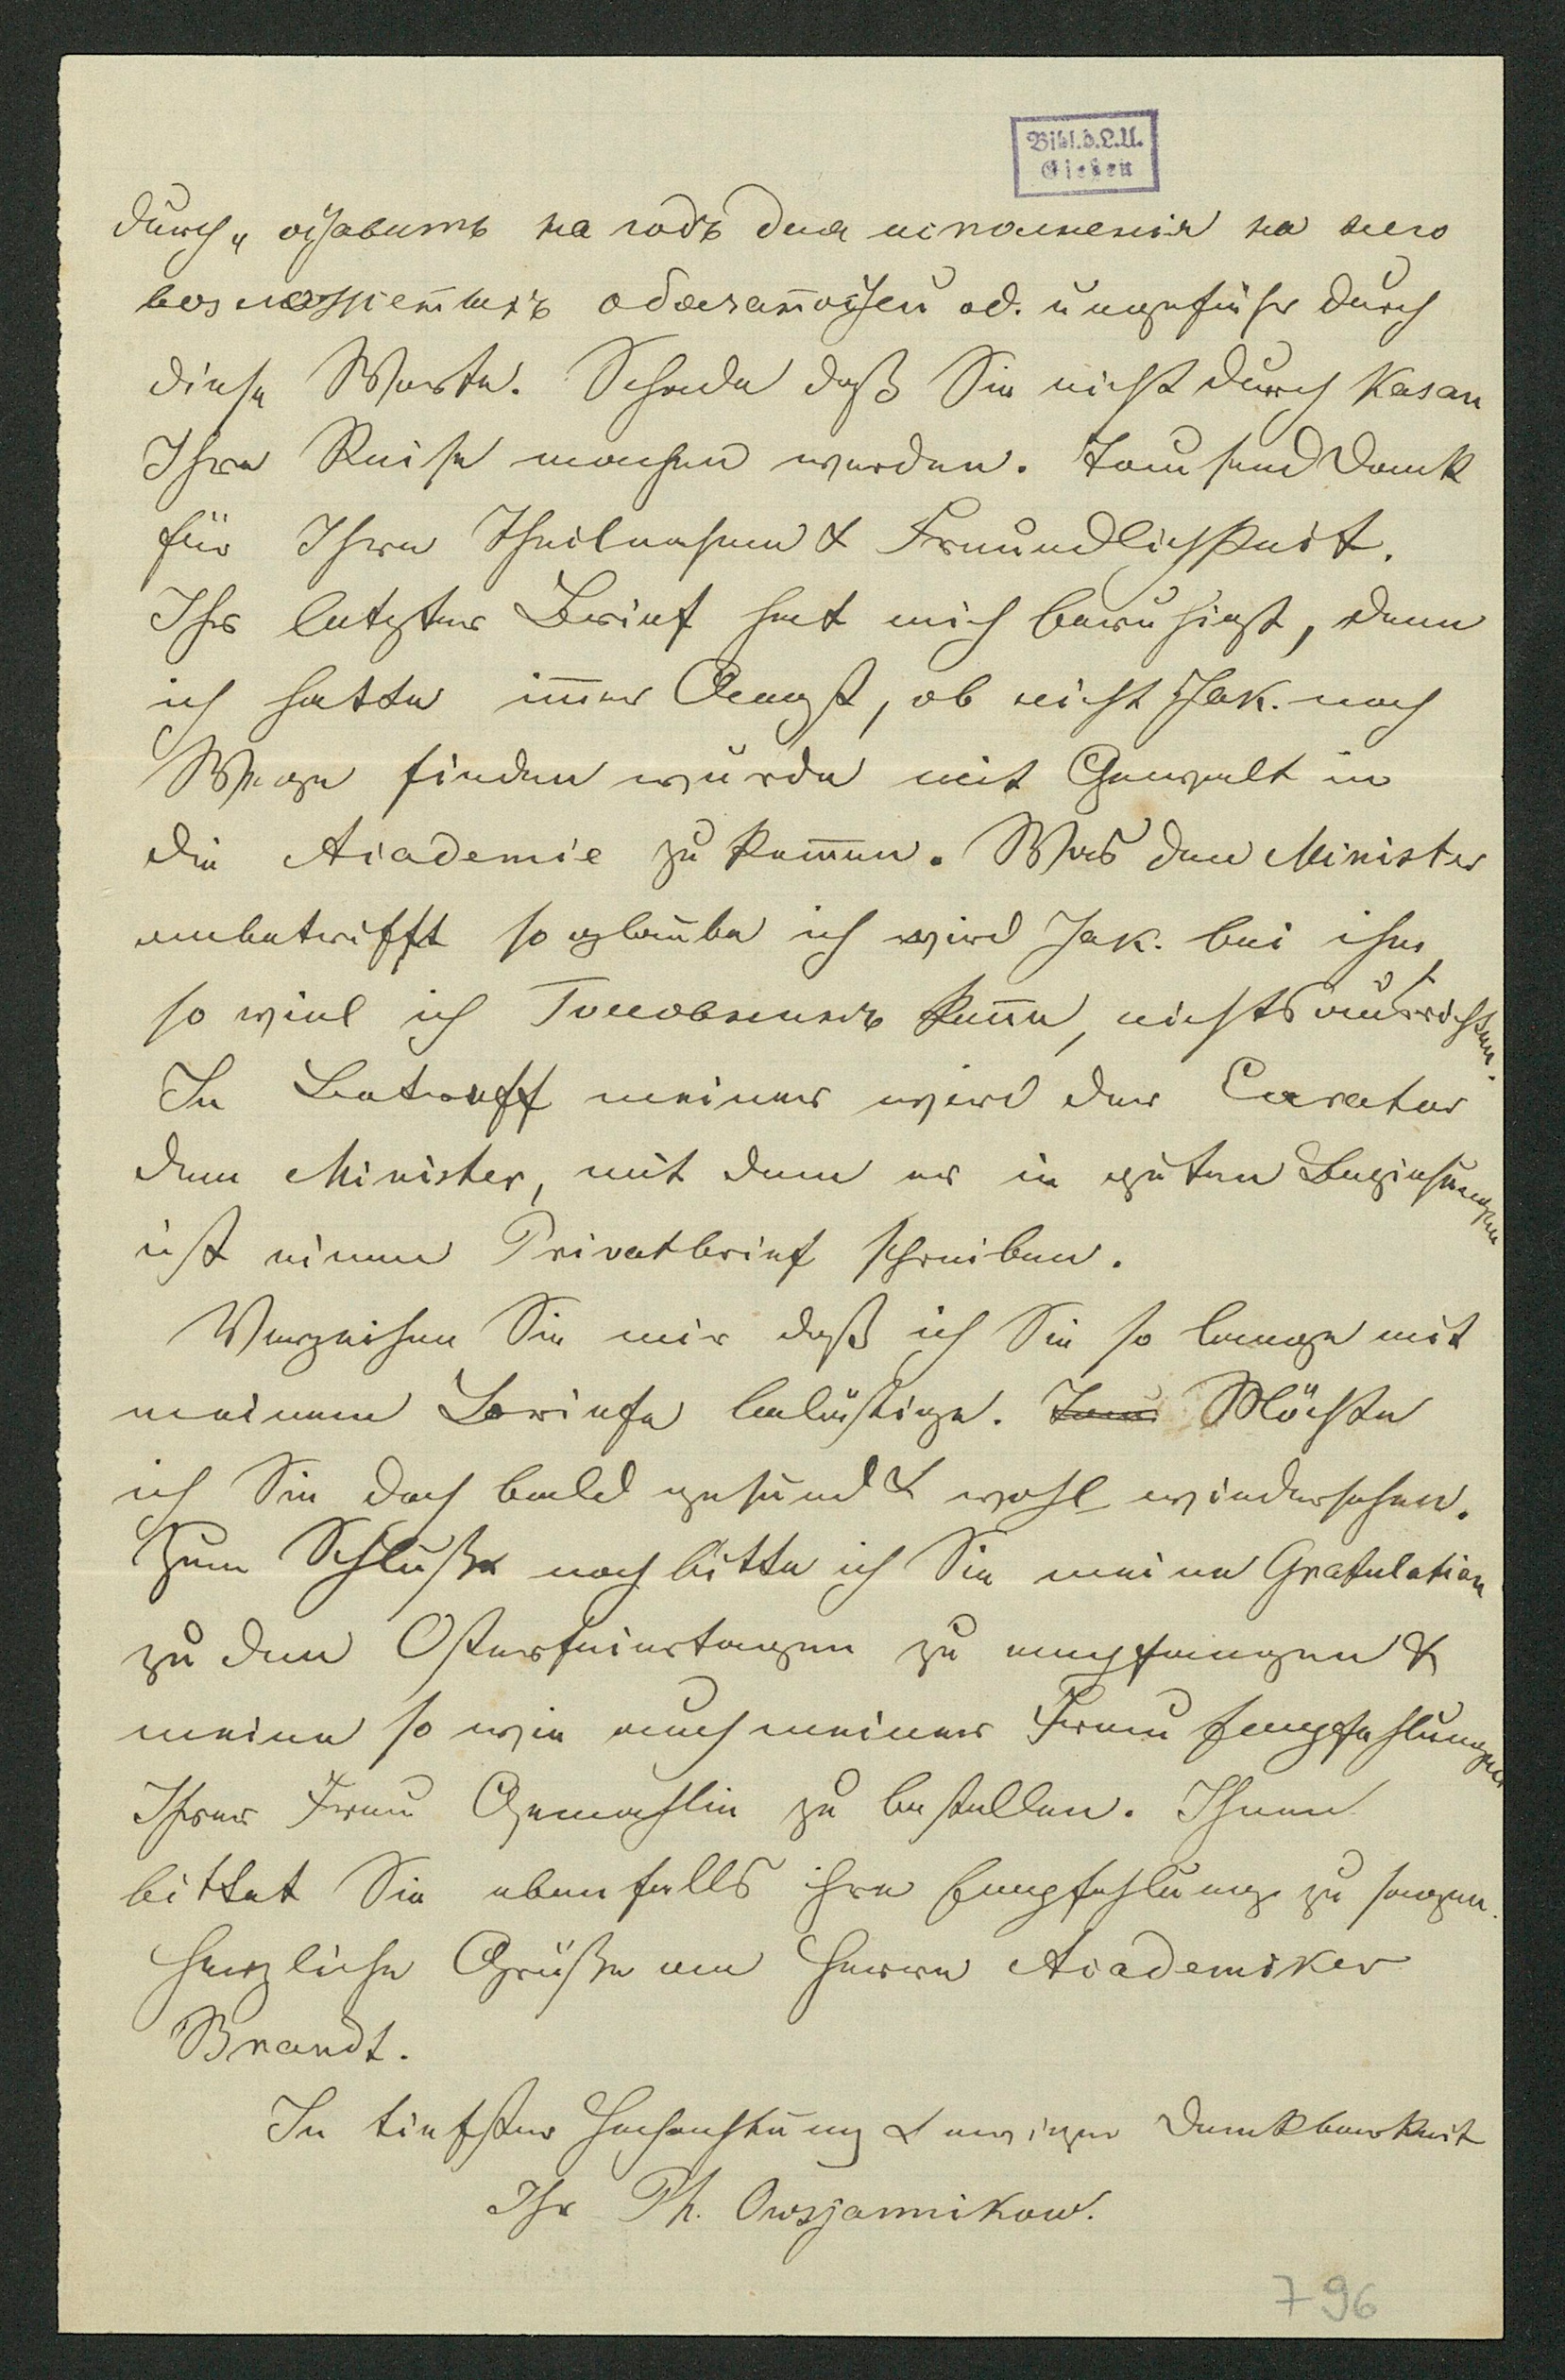 Bibl. d. L. U.
Gießen
durch „оставить на годъ для исполненія на него
возложенныхъ обязанностей od. ungefähr durch
diese Worte. Schade daß Sie nicht durch Kasan
Ihre Reise machen werden. Tausend Dank
für Ihre Theilnahme & Freundlichkeit.
Ihr letzter Brief hat mich beruhigt, denn
ich hatte im̅er Angst, ob nicht Jak. noch
Wege finden würde mit Gewalt in
die Academie zu kom̅en. Was den Minister
anbetrifft so glaube ich wird Jak. bei ihm,
so viel ich Головнинъ ken̅e, nichts ausrichten.
In Betreff meiner wird der Curator
dem Minister, mit dem er in guten Beziehungen
ist einen Privatbrief schreiben.
Verzeihen Sie mir daß ich Sie so lange mit
meinem Briefe belästige. Tau Möchte
ich Sie doch bald gesund & wohl wiedersehen.
Zum Schluße noch bitte ich Sie meine Gratulation
zu den Osterfeiertagen zu empfangen &
meine so wie auch meiner Frau Empfehlungen
Ihrer Frau Gemahlin zu bestellen. Ihnen
bittet Sie ebenfalls ihre Empfehlung zu sagen.
Herzliche Grüße an Herrn Academiker
Brandt.
In tiefster Hochachtung & ewiger Dankbarkeit
Ihr Ph. Owsjannikow.
796